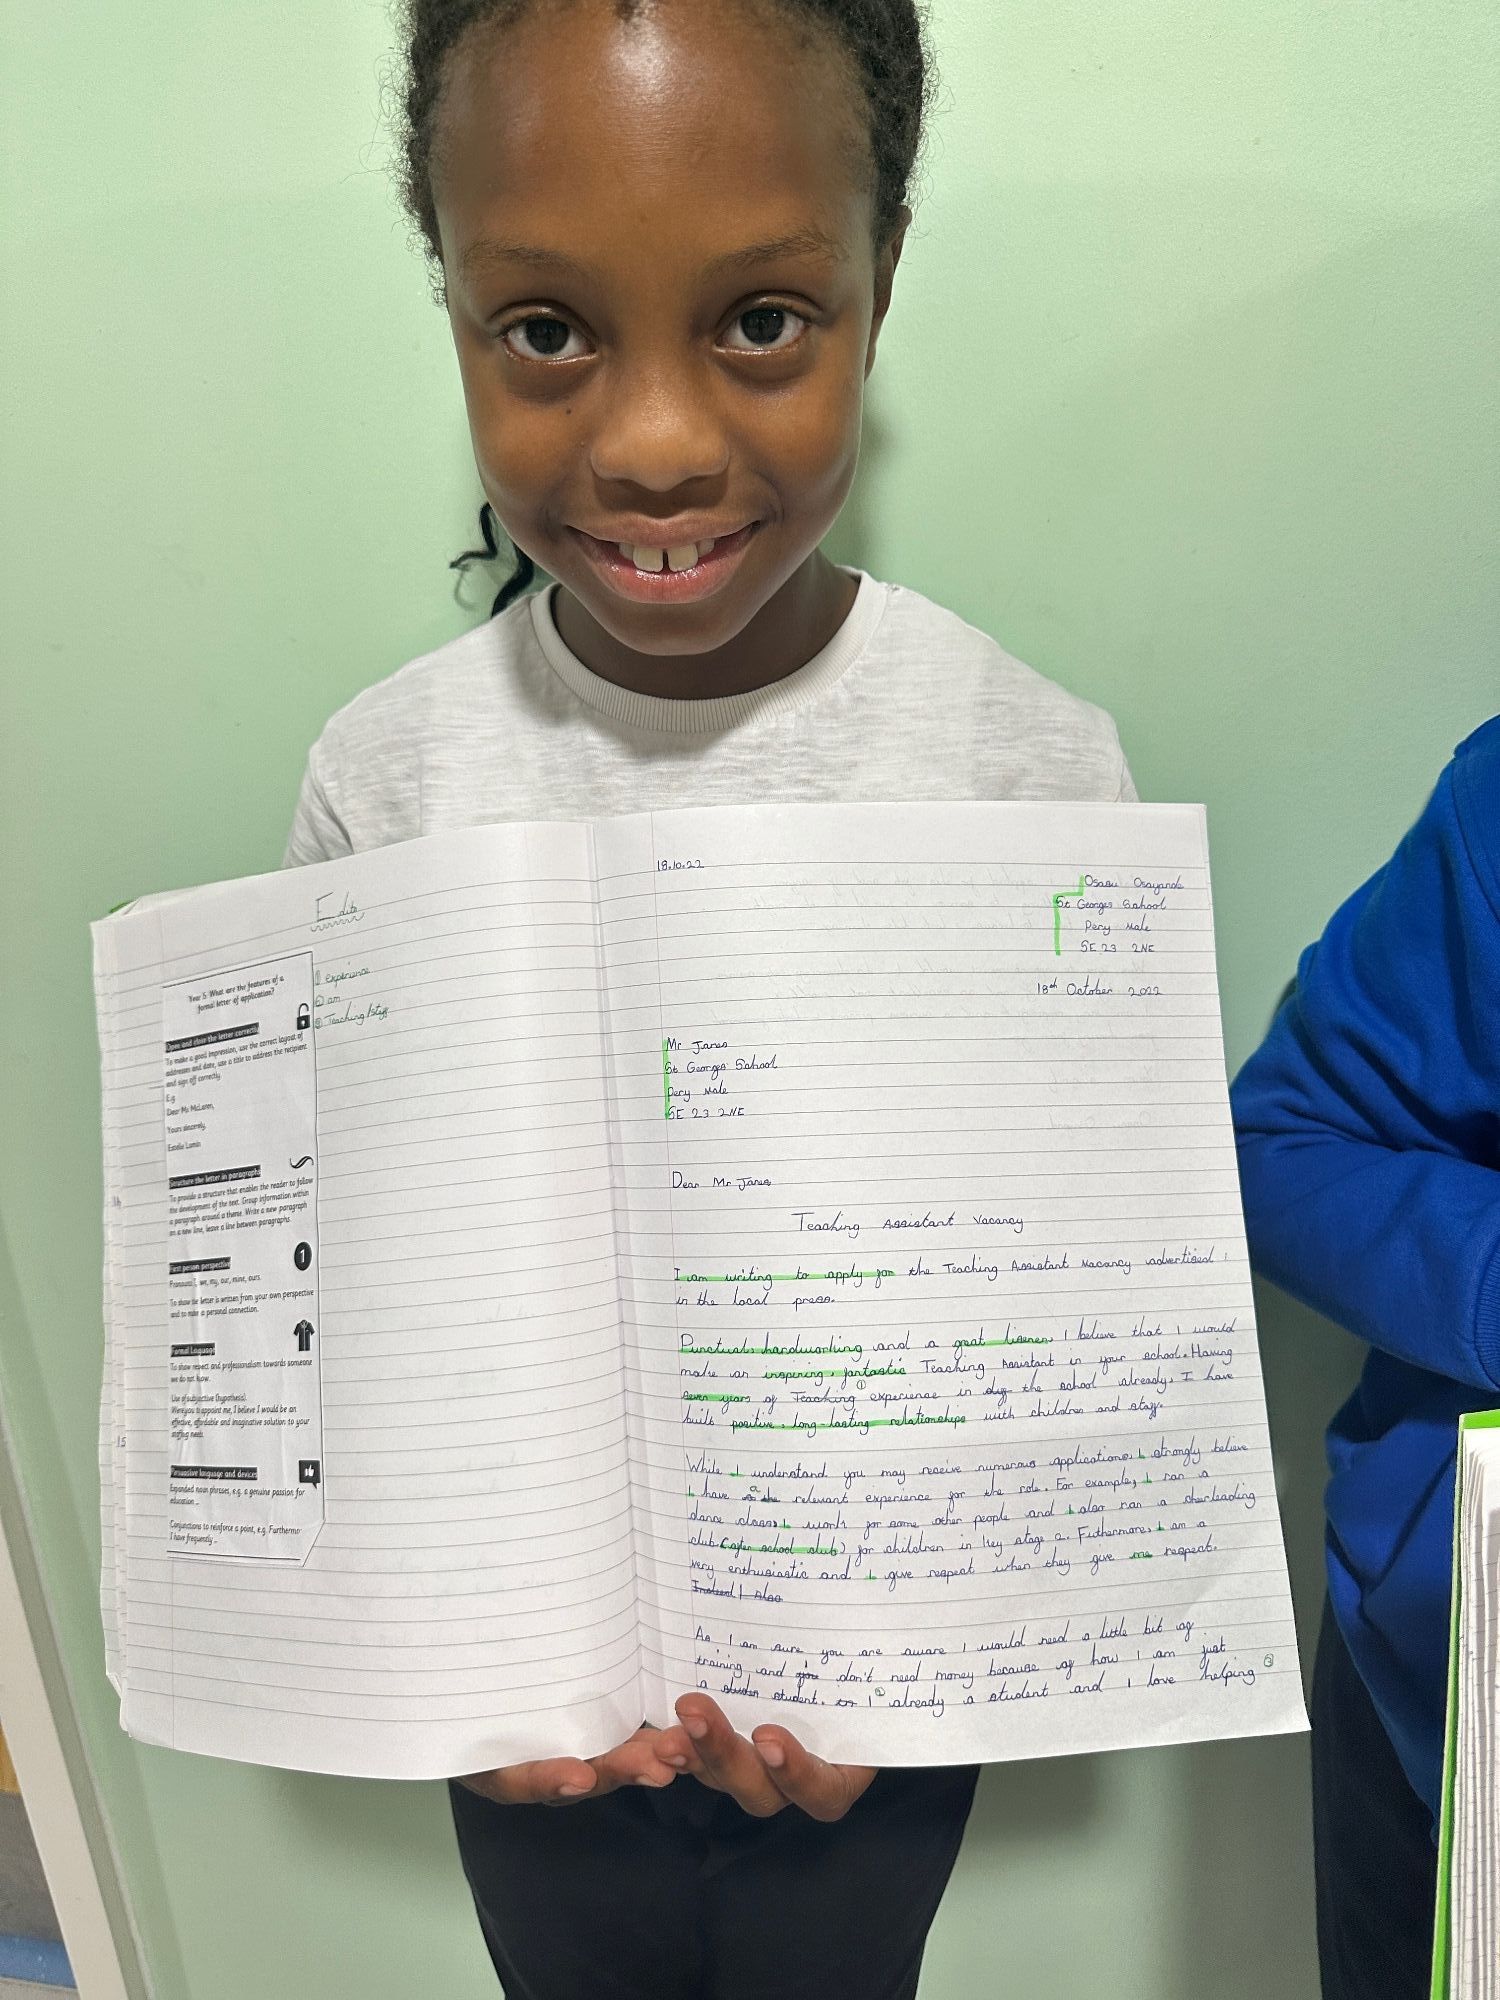 Edits
① experience
② am
③ Teaching/staff
Year 5: What are the features of a
formal letter of application?
Open and close the letter correctly
To make a good impression, use the correct layout of
addresses and date, use a title to address the recipient
and sign off correctly.
E.g.
Dear Ms McLaren,
Yours sincerely,
Estelle Lamin
Structure the letter in paragraphs
To provide a structure that enables the reader to follow
the development of the text. Group information within
a paragraph around a theme. Write a new paragraph
on a new line, leave a line between paragraphs.
First person perspective
1
Pronouns: I, we, my, our, mine, ours.
To show the letter is written from your own perspective
and to make a personal connection.
Formal Language
To show respect and professionalism towards someone
we do not know.
Use of subjunctive (hypothesis).
Were you to appoint me, I believe I would be an
effective, affordable and imaginative solution to your
staffing needs
Persuasive language and devices
Expanded noun phrases, e.g. a genuine passion for
education ...
Conjunctions to reinforce a point, e.g. Furthermo
I have frequently ...
14
15
18.10.22
Osasu Osayande
St Georges School
Pery Vale
SE 23 2NE
18th October 2022
Mr Jones
St Georges School
Pery Vale
SE 23 2NE
Dear Mr Jones
Teaching Assistant Vacancy
I am writing to apply for the Teaching Assistant Vacancy advertised
in the local press.
Punctual, hardworking and a great lisener, I believe that I would
make an inspiring, fantastic Teaching Assistant in your school. Having
seven years of Teaching ① experience in the school already, I have
built positive, long-lasting relationships with children and staff.
While I understand you may receive numerous applications, I strongly believe
I have a relevant experience for the role. For example, I ran a
dance class, I work for some other people and I also ran a cheerleading
club (after school club) for children in key stage 2. Futhermore, I am a
very enthusiastic and I give respect when they give me respect.
Instead I Also
As I am sure you are aware I would need a little bit of
training and you don't need money because of how I am just
a studen student. I ② already a student and I love helping ③